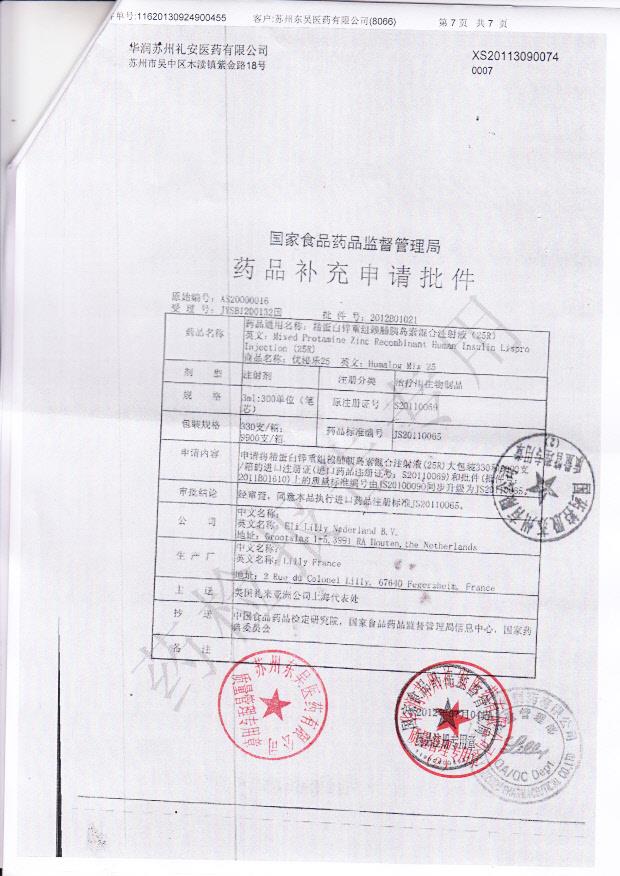 单号:11620130924900455 客户:苏州东吴医药有限公司(8066) 第 7 页 共 7 页
华润苏州礼安医药有限公司
苏州市吴中区木渎镇紫金路18号
XS20113090074
0007
国家食品药品监督管理局
药品补充申请批件
原始编号: AS20000016
受理号: JYSB1200132国 批件号: 2012B01021
药品名称
药品通用名称: 精蛋白锌重组赖脯胰岛素混合注射液(25R)
英文: Mixed Protamine Zinc Recombinant Human Insulin Lispro
Injection (25R)
商品名称: 优泌乐25 英文: Humalog Mix 25
剂 型 注射剂 注册分类 治疗用生物制品
规 格 3ml:300单位(笔芯) 原注册证号 S20110069
包装规格 330支/箱; 9900支/箱 药品标准编号 JS20110065
申请内容
申请将精蛋白锌重组赖脯胰岛素混合注射液(25R)大包装330和9900支
/箱的进口注册证(进口药品注册证号: S20110069)和批件(批件号:
2011B01610)上的质量标准编号由JS20100090同步升级为JS20110065。
审批结论 经审查,同意本品执行进口药品注册标准JS20110065。
公 司
中文名称:
英文名称: Eli Lilly Nederland B.V.
地址: Grootslag 1-5,3991 RA Houten,the Netherlands
生产厂
中文名称:
英文名称: Lilly France
地址: 2 Rue du Colonel Lilly, 67640 Fegersheim, France
主 送 美国礼来亚洲公司上海代表处
抄 送
中国食品药品检定研究院,国家食品药品监督管理局信息中心,国家药
典委员会
备 注
药检报告专用
苏州东吴医药有限公司
质量管理专用章
质量管理专用章
(2)
药品注册专用章
管理部
Lilly
QA/QC Dept.